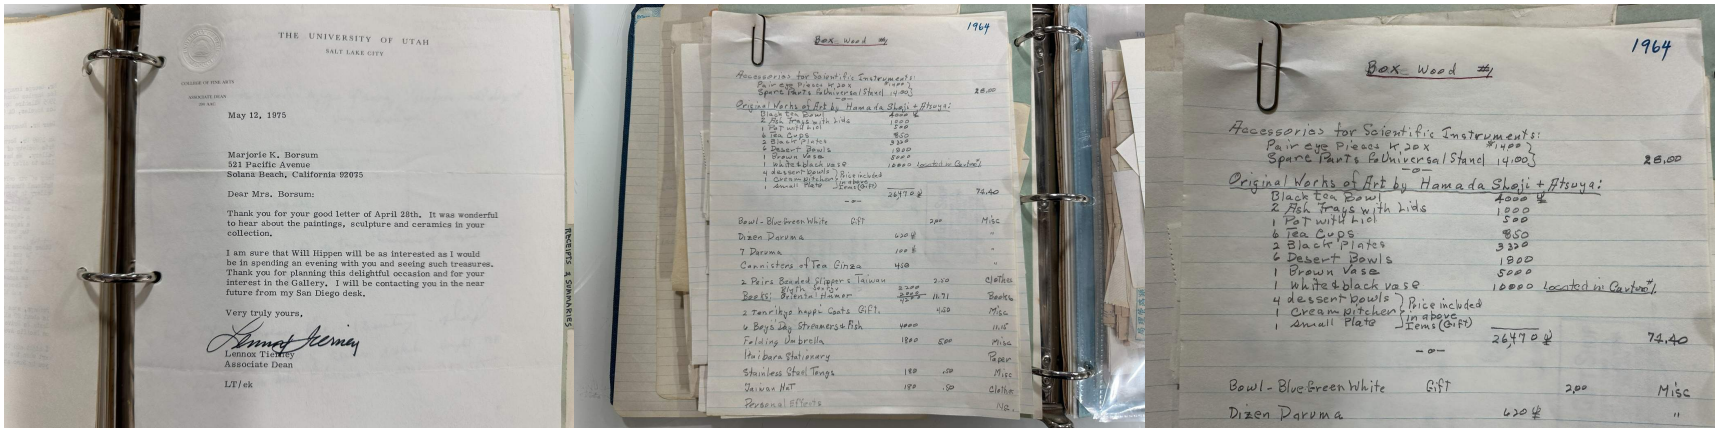 THE UNIVERSITY OF UTAH
SALT LAKE CITY
COLLEGE OF FINE ARTS
ASSOCIATE DEAN
May 12, 1975
Marjorie K. Borsum
521 Pacific Avenue
Solana Beach, California 92075
Dear Mrs. Borsum:
Thank you for your good letter of April 28th. It was wonderful
to hear about the paintings, sculpture and ceramics in your
collection.
I am sure that Will Hippen will be as interested as I would
be in spending an evening with you and seeing such treasures.
Thank you for planning this delightful occasion and for your
interest in the Gallery. I will be contacting you in the near
future from my San Diego desk.
Very truly yours,
Lennox Tierney
Lennox Tierney
Associate Dean
LT/ek
RECEIPTS & SUMMARIES
1964
Box Wood #1
Accessories for Scientific Instruments:
Pair eye Pieces K 20x $14.00}
Spare Parts to Universal Stand 14.00} 28.00
-o-
Original Works of Art by Hamada Shoji + Atsuya:
Black tea Bowl 4000 ¥
2 Ash Trays with Lids 1000
1 Pot with Lid 500
6 Tea Cups 850
2 Black Plates 3320
6 Desert Bowls 1800
1 Brown Vase 5000
1 white & black vase 10000 Located in Carton #1
4 dessert bowls } Price included
1 Cream pitcher } in above
1 Small Plate } Items (Gift)
26,470 ¥ 74.40
-o-
Bowl - Blue Green White Gift 2.00 Misc
Dizen Daruma 620 ¥ "
7 Daruma 100 ¥ "
Cannisters of Tea Ginza 450 "
2 Pairs Beaded Slippers Taiwan 2.50 Clothes
Books: Oriental Humor 11.71 Books
2 Tenrikyo happi Coats Gift. 4.50 Misc
4 Boy's Day Streamers & Fish 4000 11.15
Folding Umbrella 1800 500 Misc
Haibara Stationary Paper
Stainless Steel Tongs 180 .50 Misc
Taiwan Hat 180 .50 Clothes
Personal Effects N.C.
1964
Box Wood #1
Accessories for Scientific Instruments:
Pair eye Pieces K 20x $14.00}
Spare Parts to Universal Stand 14.00} 28.00
-o-
Original Works of Art by Hamada Shoji + Atsuya:
Black tea Bowl 4000 ¥
2 Ash Trays with Lids 1000
1 Pot with Lid 500
6 Tea Cups 850
2 Black Plates 3320
6 Desert Bowls 1800
1 Brown Vase 5000
1 white & black vase 10000 Located in Carton #1
4 dessert bowls } Price included
1 Cream pitcher } in above
1 Small Plate } Items (Gift)
26,470 ¥ 74.40
-o-
Bowl - Blue Green White Gift 2.00 Misc
Dizen Daruma 620 ¥ "